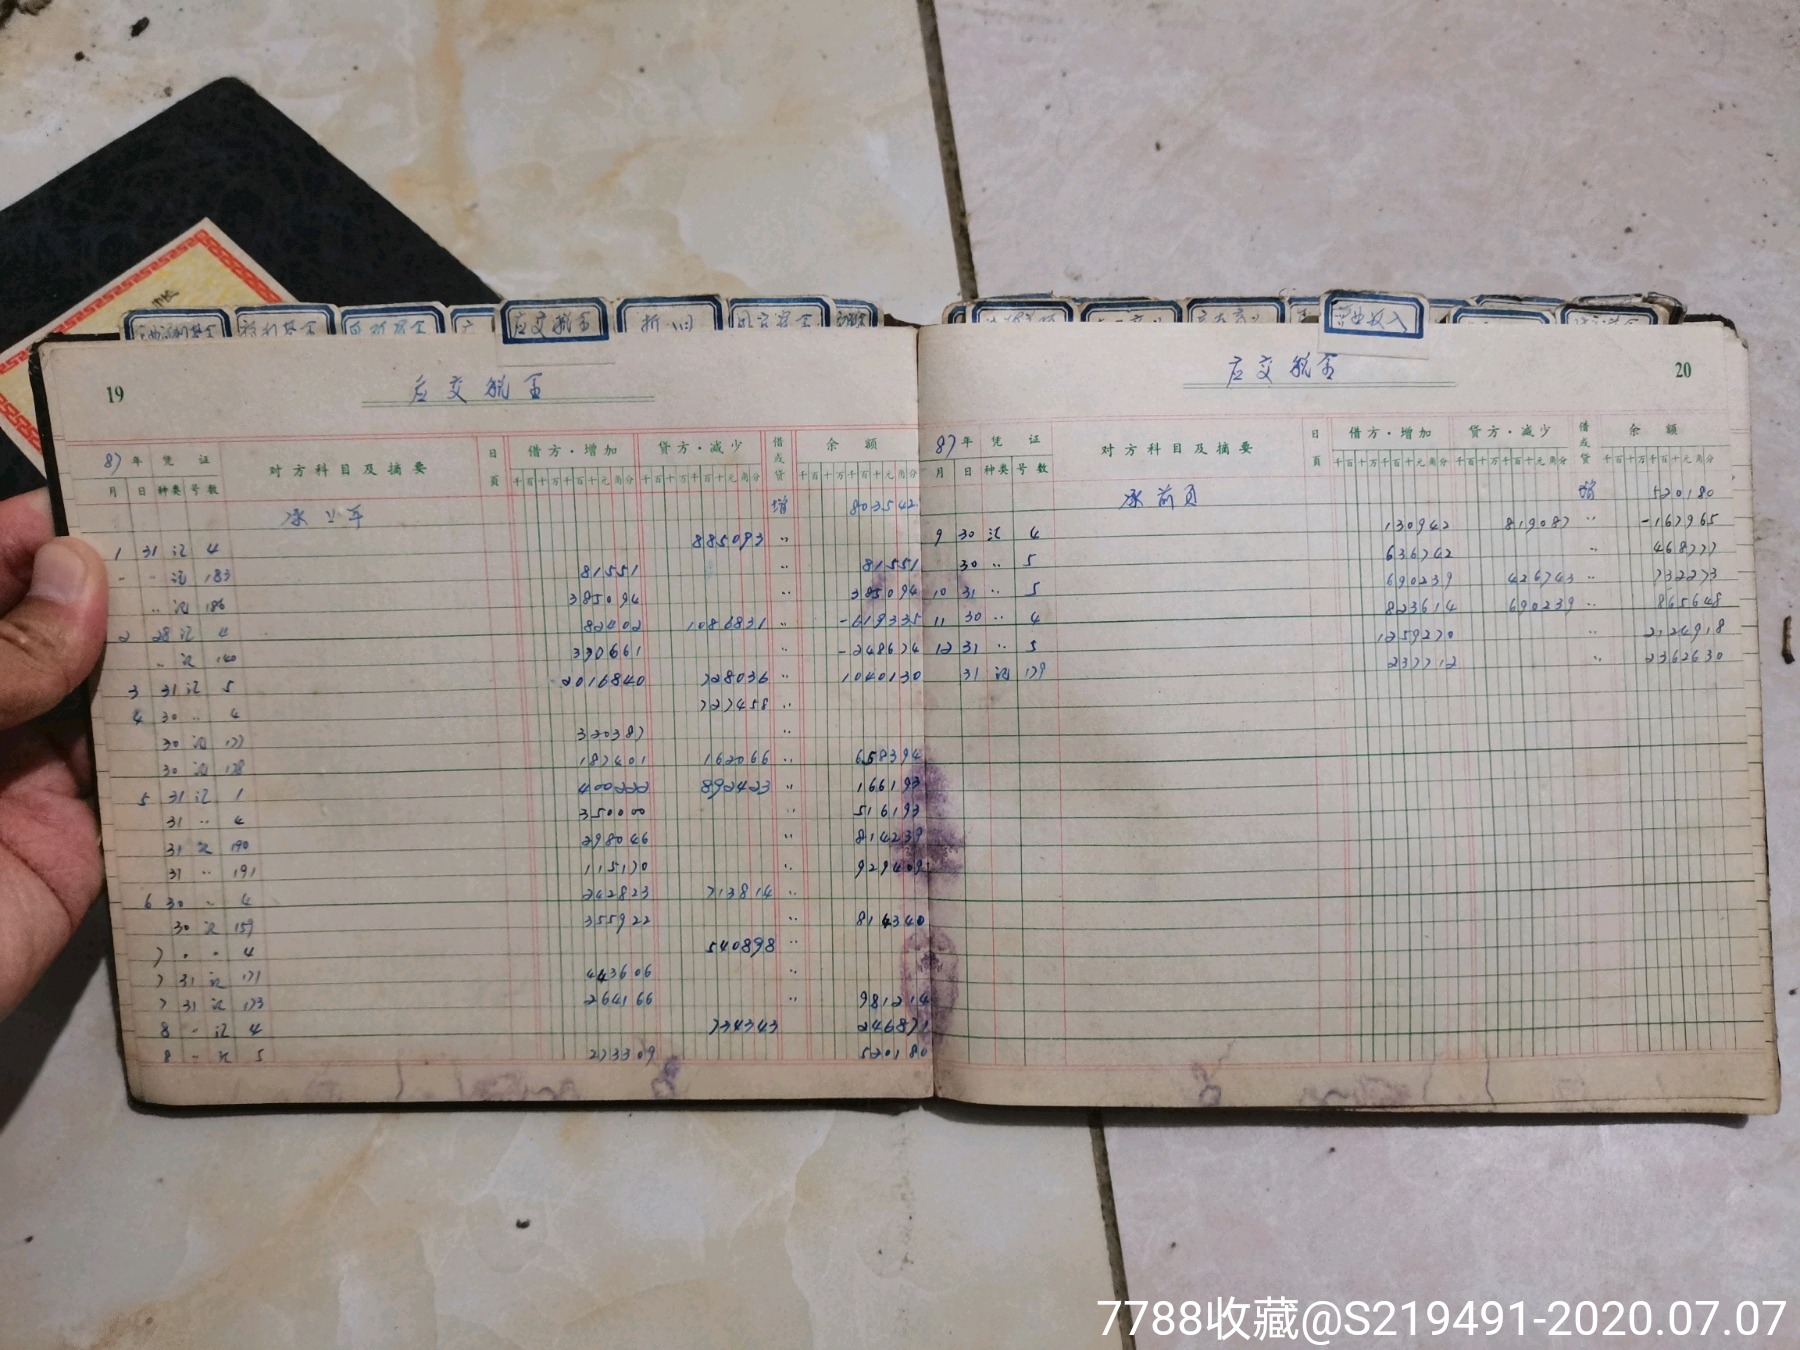 应交税金
折旧
营业收入
19
应交税金
87年 凭证 对方科目及摘要 日页 借方·增加 贷方·减少 借或贷 余额
月 日 种类 号数 千百十万千百十元角分 千百十万千百十元角分 千百十万千百十元角分
承上年 增 803542
1 31 记 4 885093 〃
记 183 81551 〃 81551
〃 记 186 385094 385094
2 28 记 4 82402 1086831 〃 -619335
〃 记 140 370661 〃 -248674
3 31 记 5 2016840 728036 〃 1040130
4 30 〃 4 727458 〃
30 记 177 320387 〃
30 记 178 187401 162066 〃 658394
5 31 记 1 400222 892423 〃 166193
31 〃 4 350000 〃 516193
31 记 190 298046 〃 814239
31 〃 191 115170 〃 929409
6 30 〃 4 242823 713814 〃
30 记 159 355922 〃 814340
7 〃 〃 4 540898 〃
7 31 记 171 443606 〃
7 31 记 173 264166 〃 981214
8 〃 记 4 734343 246871
8 〃 记 5 273309 520180
应交税金
20
87年 凭证 对方科目及摘要 日页 借方·增加 贷方·减少 借或贷 余额
月 日 种类 号数 千百十万千百十元角分 千百十万千百十元角分 千百十万千百十元角分
承前页 增 520180
9 30 记 4 130942 819087 〃 -167965
30 〃 5 636742 〃 468777
10 31 〃 5 690239 426743 〃 732273
11 30 〃 4 823614 690239 〃 865648
12 31 〃 5 1259270 〃 2124918
31 记 179 237712 〃 2362630
7788收藏@S219491-2020.07.07